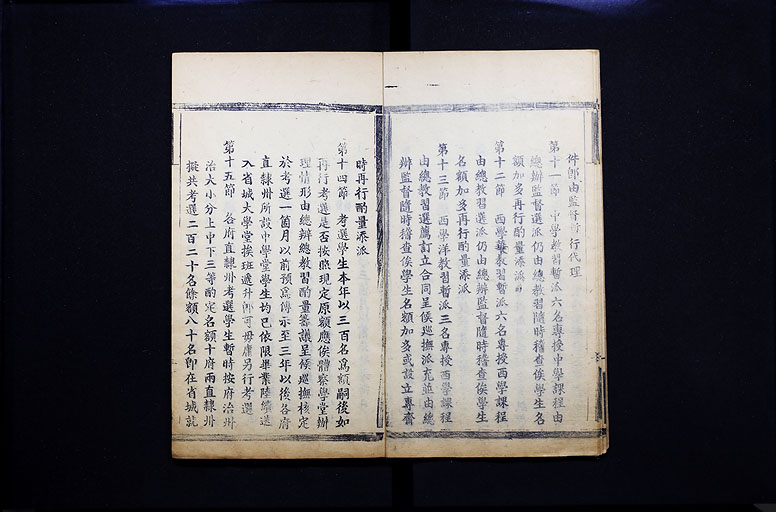 件卽由監督暫行代理
第十一節　中學教習暫派六名專授中學課程由
總辦監督選派仍由總教習隨時稽查俟學生名
額加多再行酌量添派
第十二節　西學華教習暫派六名專授西學課程
由總教習選派仍由總辦監督隨時稽查俟學生
名額加多再行酌量添派
第十三節　西學洋教習暫派三名專授西學課程
由總教習選薦訂立合同呈候巡撫派充並由總
辦監督隨時稽查俟學生名額加多或設立專齋
時再行酌量添派
第十四節　考選學生本年以三百名爲額嗣後如
再行考選是否按照現定原額應俟體察學堂辦
理情形由總辦總教習酌量籌議呈候巡撫核定
於考選一箇月以前預爲傳示至三年以後各府
直隸州所設中學堂學生均已依限畢業陸續送
入省城大學堂挨班遞升卽可毋庸另行考選
第十五節　各府直隸州考選學生暫時按府治州
治大小分上中下三等酌定名額十府兩直隸州
擬共考選二百二十名餘額八十名卽在省城就